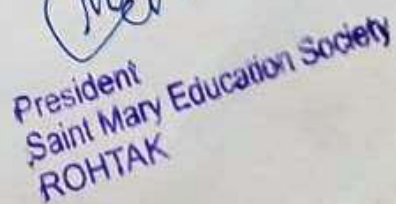 President
Saint Mary Education Society
ROHTAK